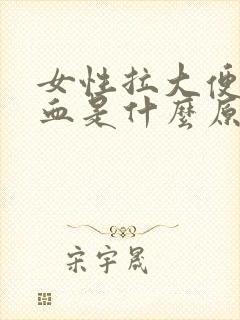 女性拉大便
血是什麼原
宋宇晟